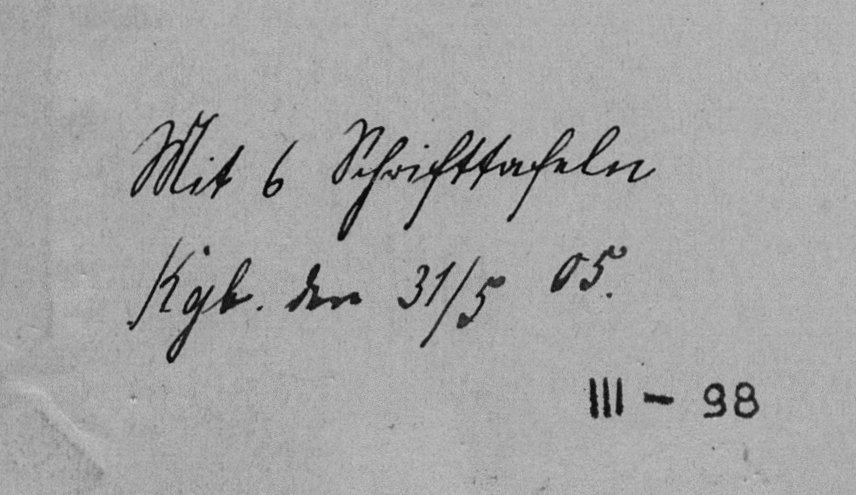 Mit 6 Schrifttafeln
Kgb. den 31/5 05.
III - 98